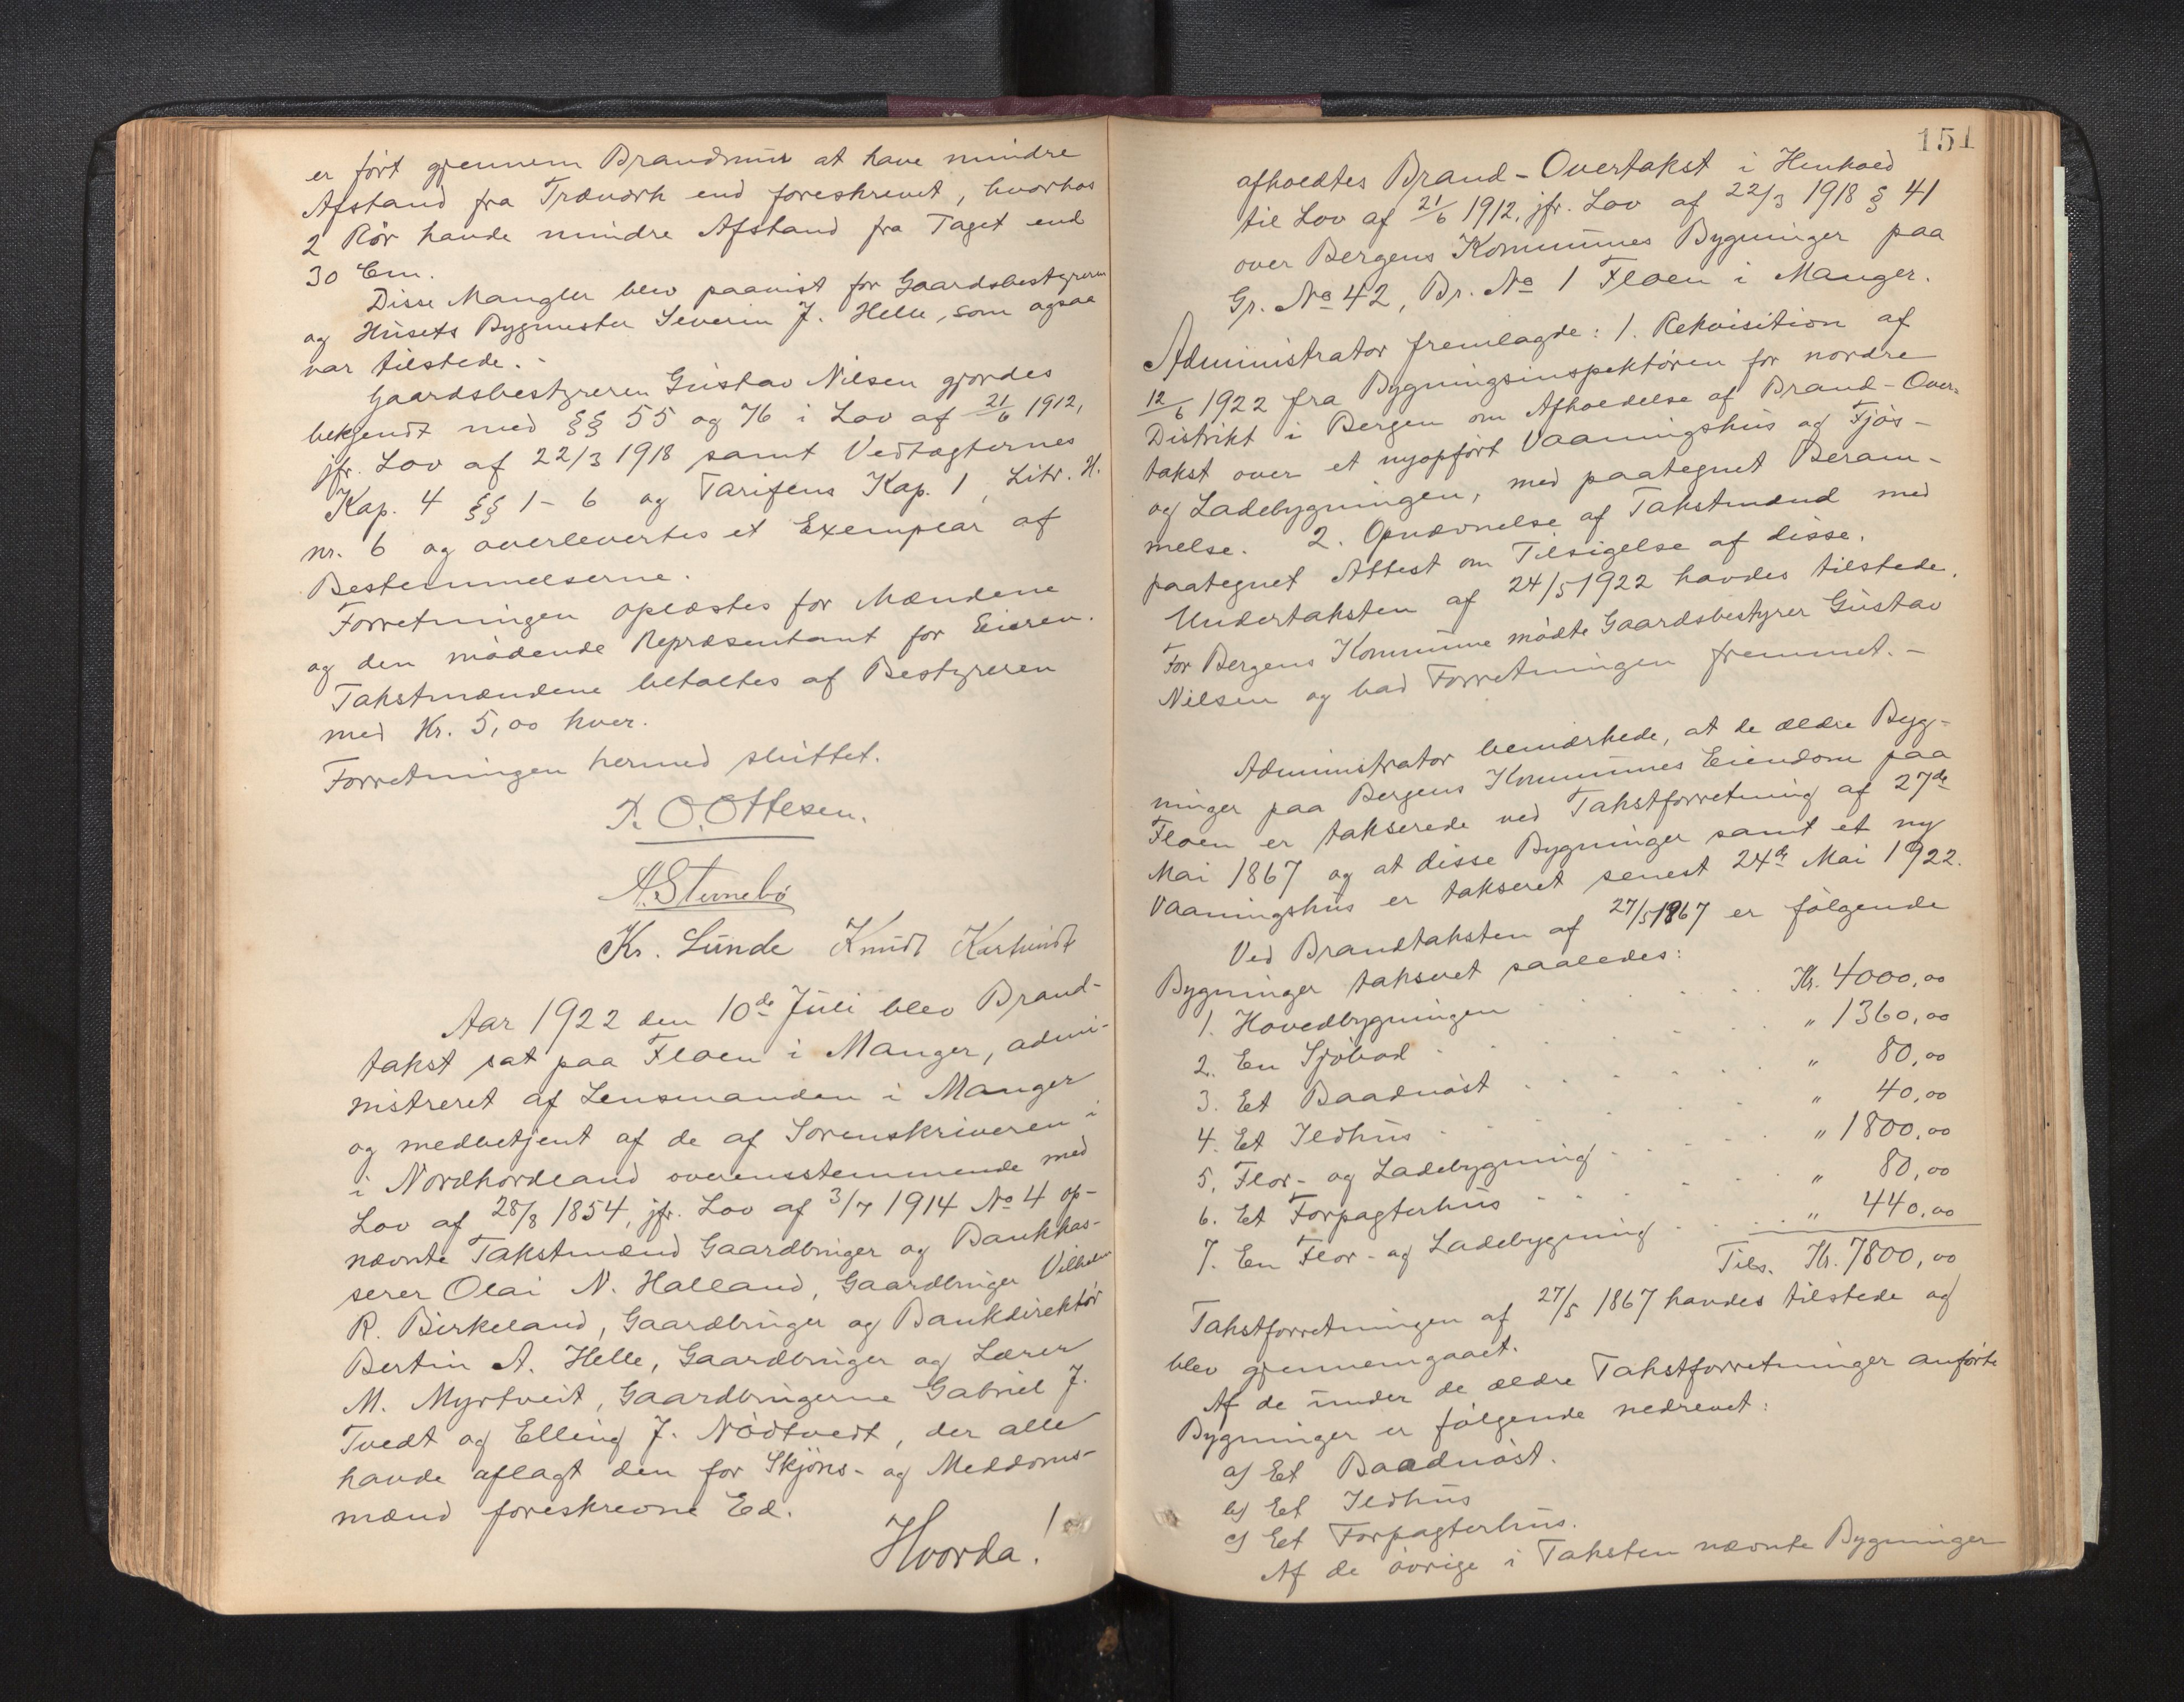 er ført gjennem Brandmur at have mindre
Afstand fra Træværk end foreskrevet, hvorhos
2 Rør havde mindre Afstand fra Taget end
30 Cm.
Disse Mangler blev paavist for Gaardsbestyreren
og Husets Bygmester Severin J. Helle, som ogsaa
var tilstede.-
Gaardsbestyreren Gustav Nilsen gjordes
bekjendt med §§ 55 og 76 i Lov af 21/6 1912,
jfr. Lov af 22/3 1918 samt Vedtægternes
Kap. 4 §§ 1-6 og Tarifens Kap. 1, Litr. H.
nr. 6 og overlevertes et Exemplar af
Bestemmelserne.
Forretningen oplæstes for Mændene
og den mødende Repræsentant for Eieren.
Takstmændene betaltes af Bestyreren
med Kr. 5,00 hver.
Forretningen hermed sluttet.
O. Ottesen.
A. Sternebø
Kr. Lunde Knudt
Aar 1922 den 10de Juli blev Brand-
takst sat paa Floen i Manger, admi-
nistreret af Lensmanden i Manger
og medbetjent af de af Sorenskriveren i
i Nordhordland overensstemmende med
Lov af 28/8 1854, jfr. Lov af 3/7 1914 No 4 op-
nævnte Takstmænd Gaardbruger og Bankkas-
serer Olai N. Halland, Gaardbruger Vilhelm
R. Birkeland, Gaardbruger og Bankdirektør
Bertin A. Helle, Gaardbruger og Lærer
M. Myrtveit, Gaardbrugerne Gabriel J.
Tvedt og Elling J. Nødtvedt, der alle
havde aflagt den for Skjøns- og Meddoms-
mænd foreskrevne Ed.
Hvorda!
151
afholdtes Brand-Overtakst i Henhold
til Lov af 21/6 1912, jfr. Lov af 22/3 1918 § 41
over Bergens Kommunes Bygninger paa
Gr. No 42, Br. No 1 Floen i Manger.
Administrator fremlagde: 1. Rekvisition af
12/6 1922 fra Bygningsinspektøren for nordre
Distrikt i Bergen om Afholdelse af Brand-Over-
takst over et nyopført Vaaningshus og Fjøs-
og Ladebygningen, med paategnet Beram-
melse. 2. Opnævnelse af Takstmænd med
paategnet Attest om Tilsigelse af disse.
Undertaksten af 24/5 1922 havdes tilstede.
For Bergens Kommune mødte Gaardsbestyrer Gustav
Nilsen og bad Forretningen fremmet.-
Administrator bemærkede, at de ældre Byg-
ninger paa Bergens Kommunes Eiendom paa
Floen er takserede ved Takstforretning af 27de
Mai 1867 og at disse Bygninger samt et ny
Vaaningshus er takseret senest 24de Mai 1922.
Ved Brandtaksten af 27/5 1867 er følgende
Bygninger takseret saaledes:
1. Hovedbygningen . . . . Kr. 4000,00
2. En Sjøbod . . . . " 1360,00
3. Et Baadnøst . . . . " 80,00
4. Et Ildhus . . . . " 40,00
5. Flor- og Ladebygning . . . . " 1800,00
6. Et Forpagterhus . . . . " 80,00
7. En Flor- og Ladebygning . . . . " 440,00
Tils. Kr. 7800,00
Takstforretningen af 27/5 1867 havdes tilstede og
blev gjennemgaaet.
Af de under de ældre Takstforretninger anførte
Bygninger er følgende nedrevet:
a) Et Baadnøst.
b) Et Ildhus
c) Et Forpagterhus.
Af de øvrige i Taksten nævnte Bygninger